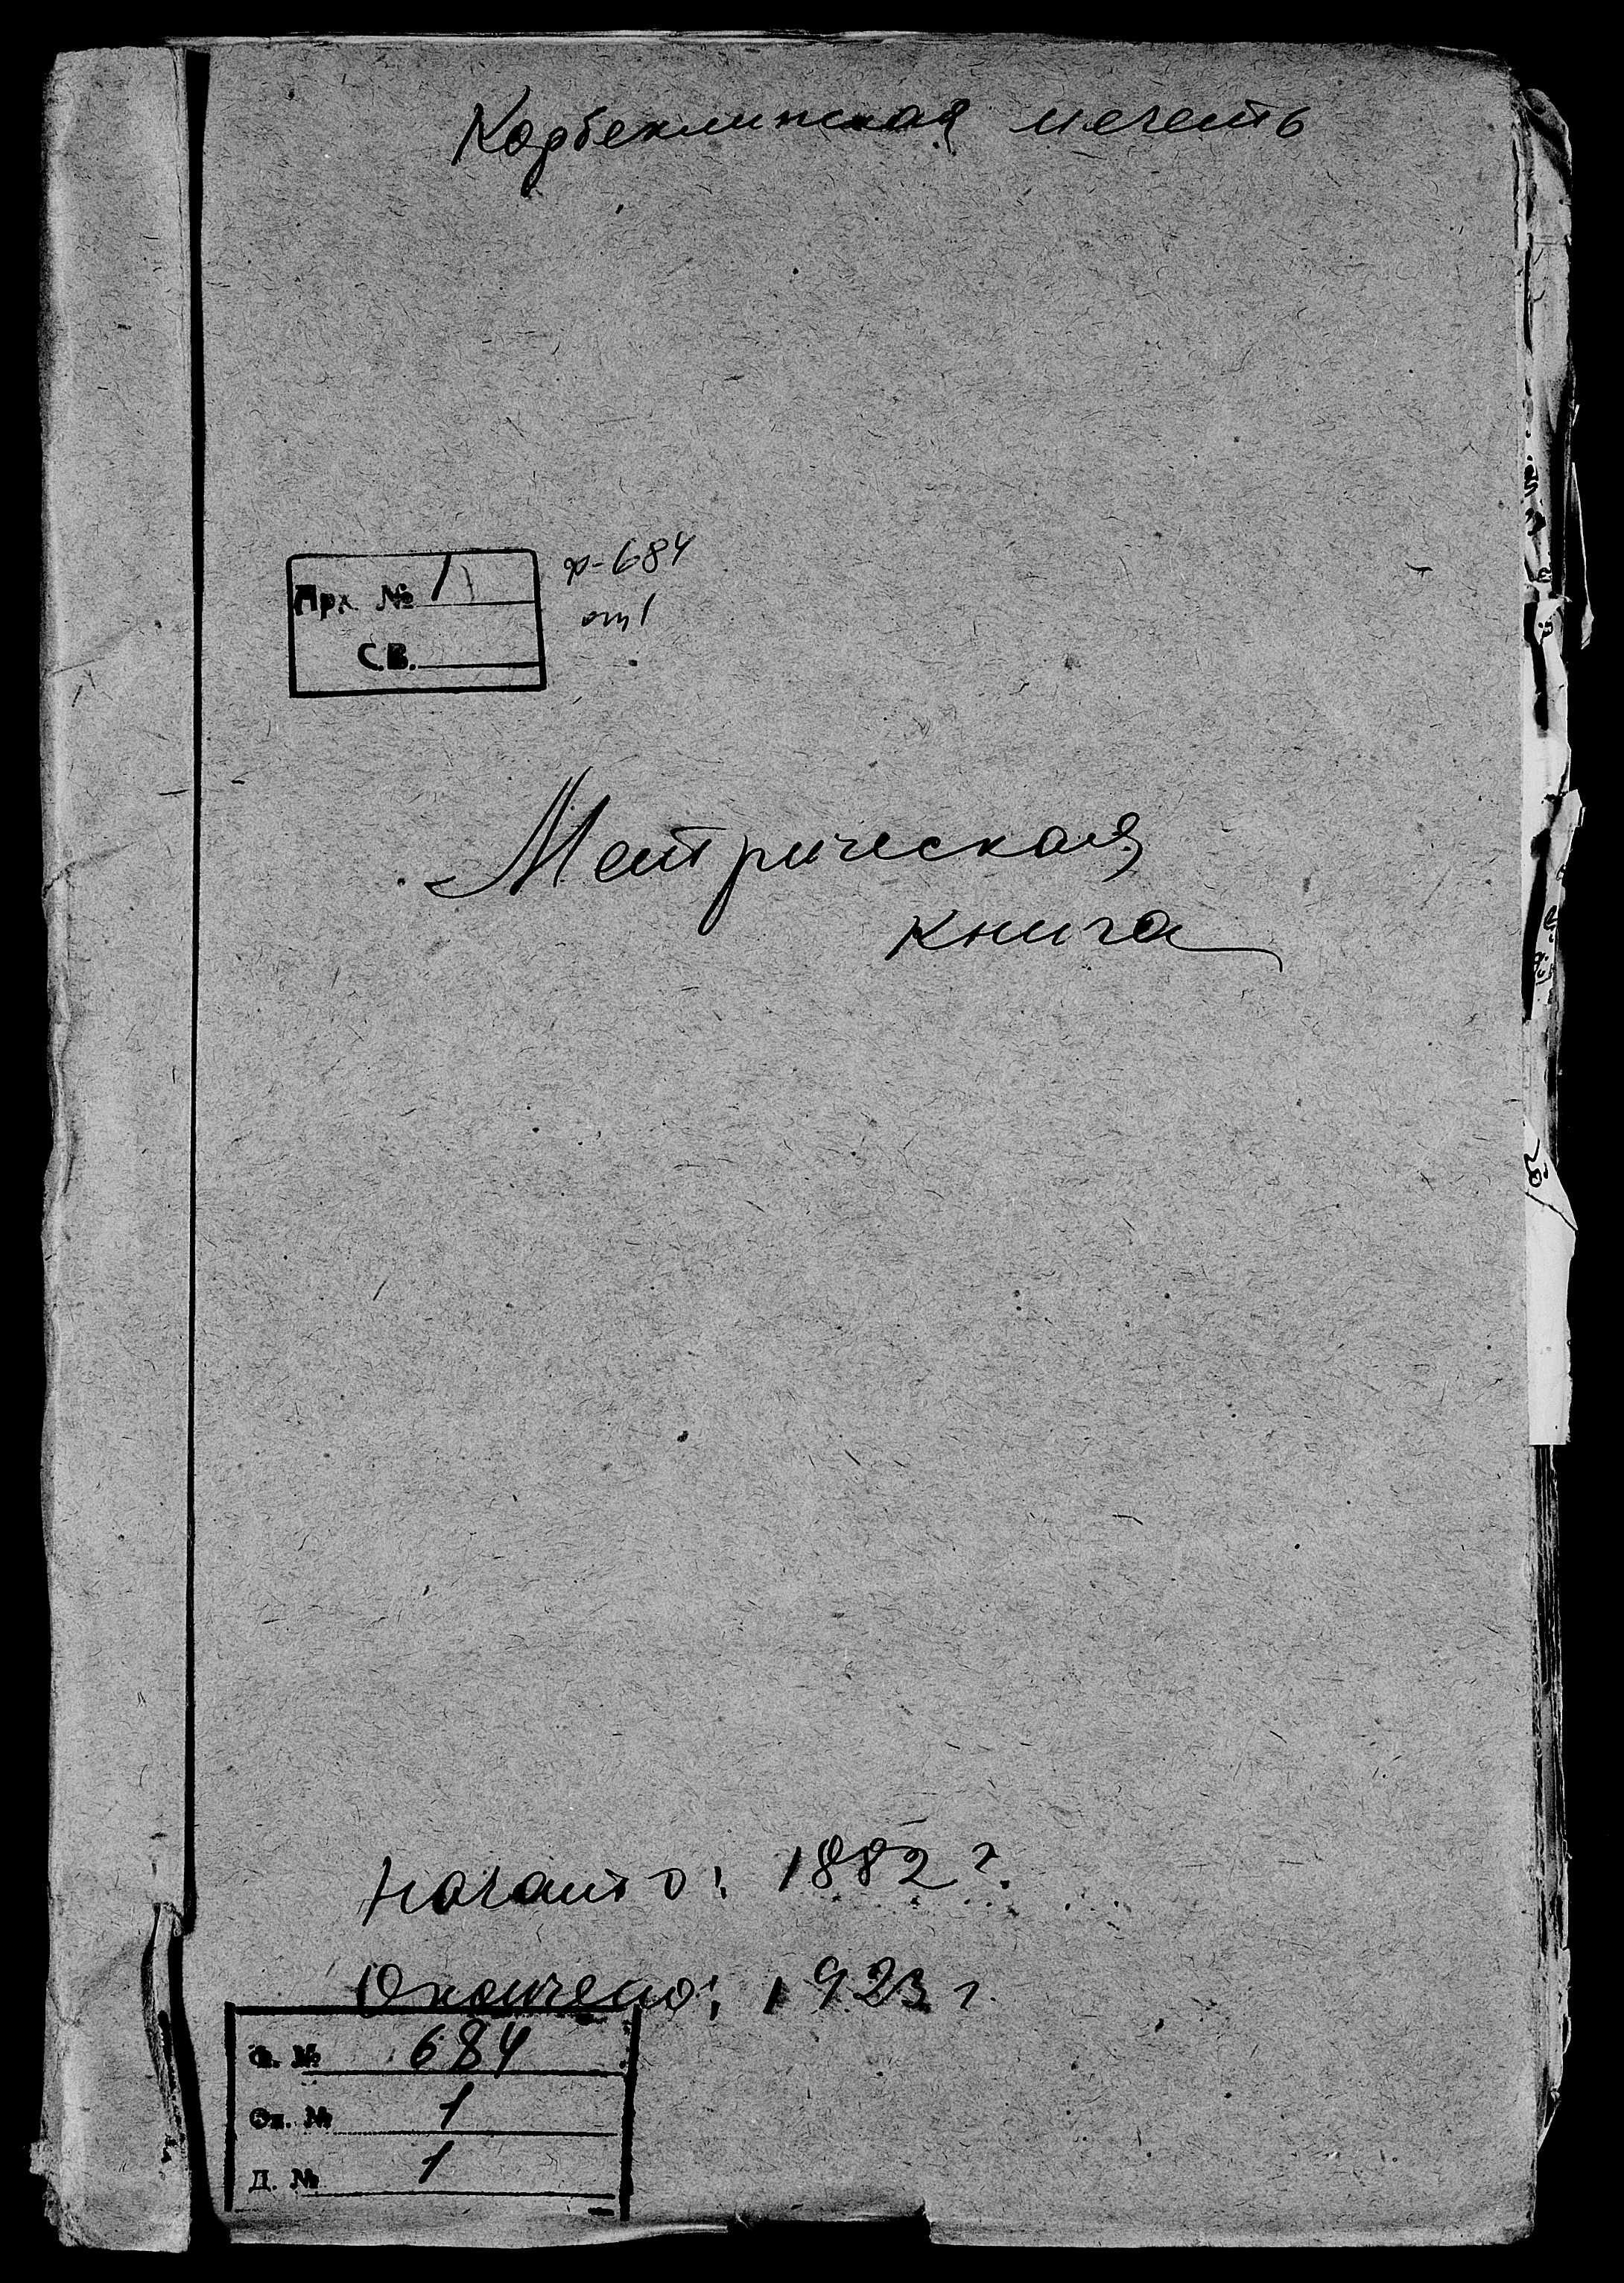 Кадбеклинская мечеть
Арх. № 1
С.В.
ф-684
оп 1
Метрическая
книга
Начато: 1882 г.
Окончено: 1923 г.
Ф. № 684
Оп. № 1
Д. № 1